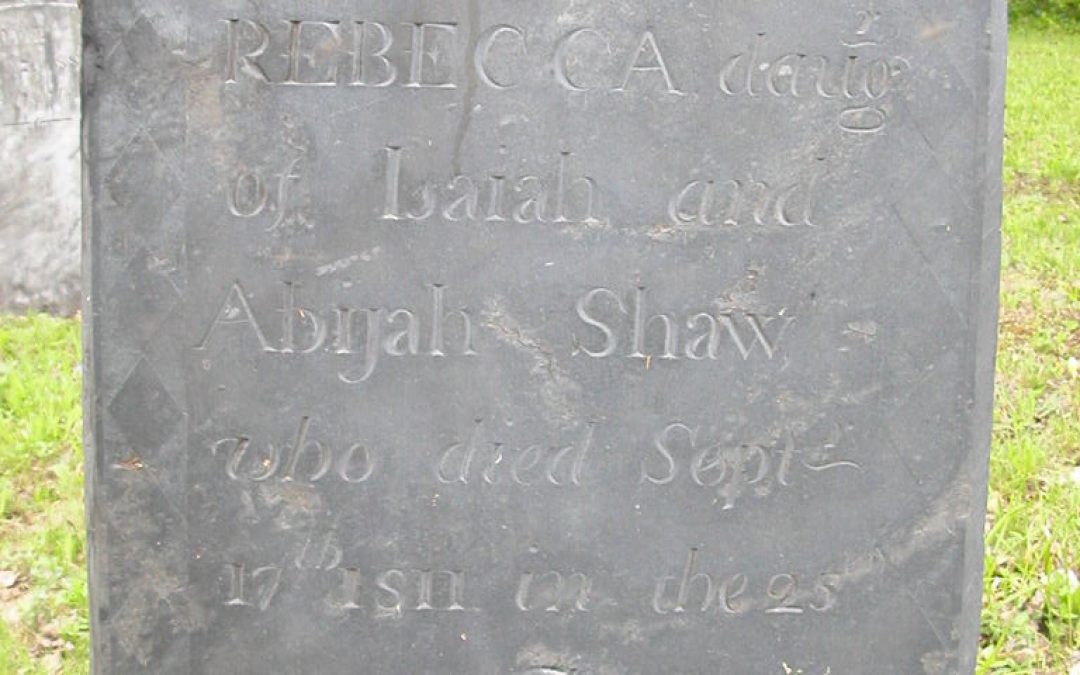 REBECCA daugr
of Isaiah and
Abijah Shaw
who died Septr
17th 1811 in the 25th